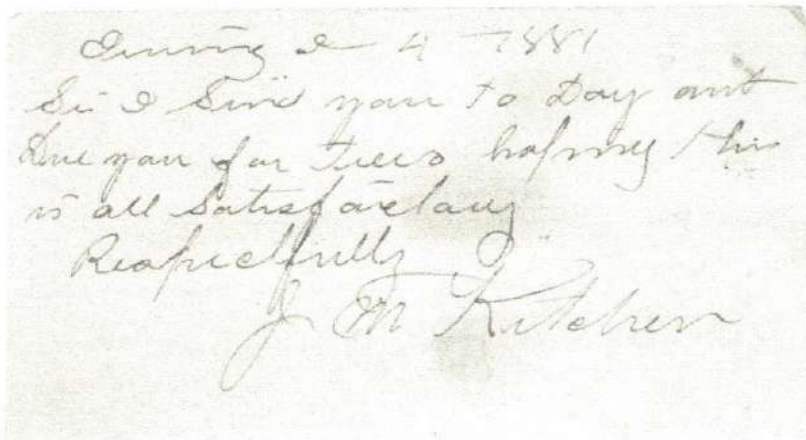 4 1881
Sir I Send you to Day amt
Due you for trees hoping this
is all Satisfactory
Respectfully
J M Kitchen